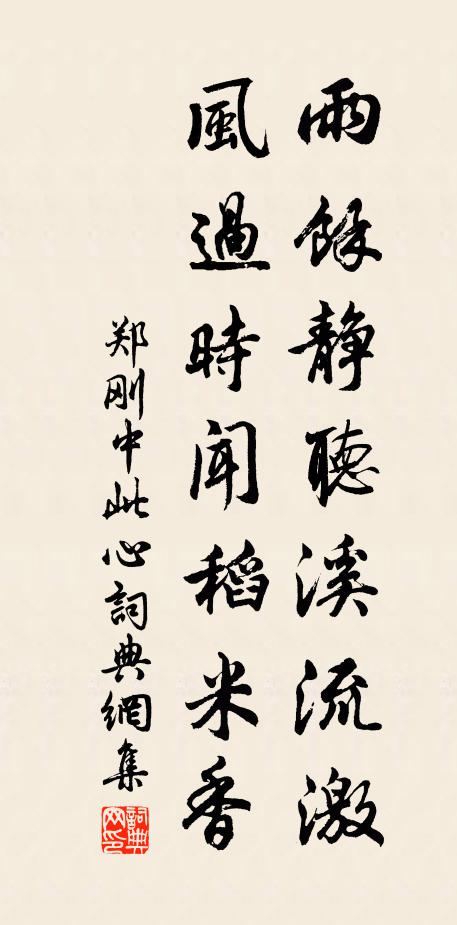 雨餘静聽溪流激
風過時闻稻米香
郑刚中此心詞典網集
詞典網印